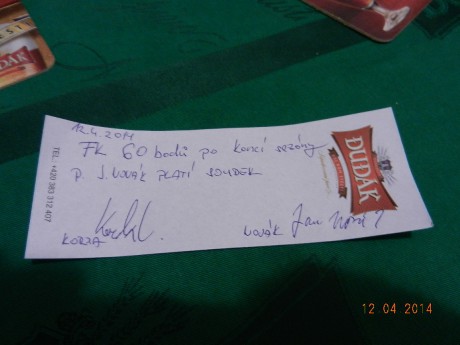 12.4.2014
FK 60 bodů po konci sezóny
P. J. NOVÁK PLATÍ SOUDEK
KORZA
NOVÁK Jan Novák
DUDÁK
TEL.: +420 383 312 407
DÁK
12 04 2014